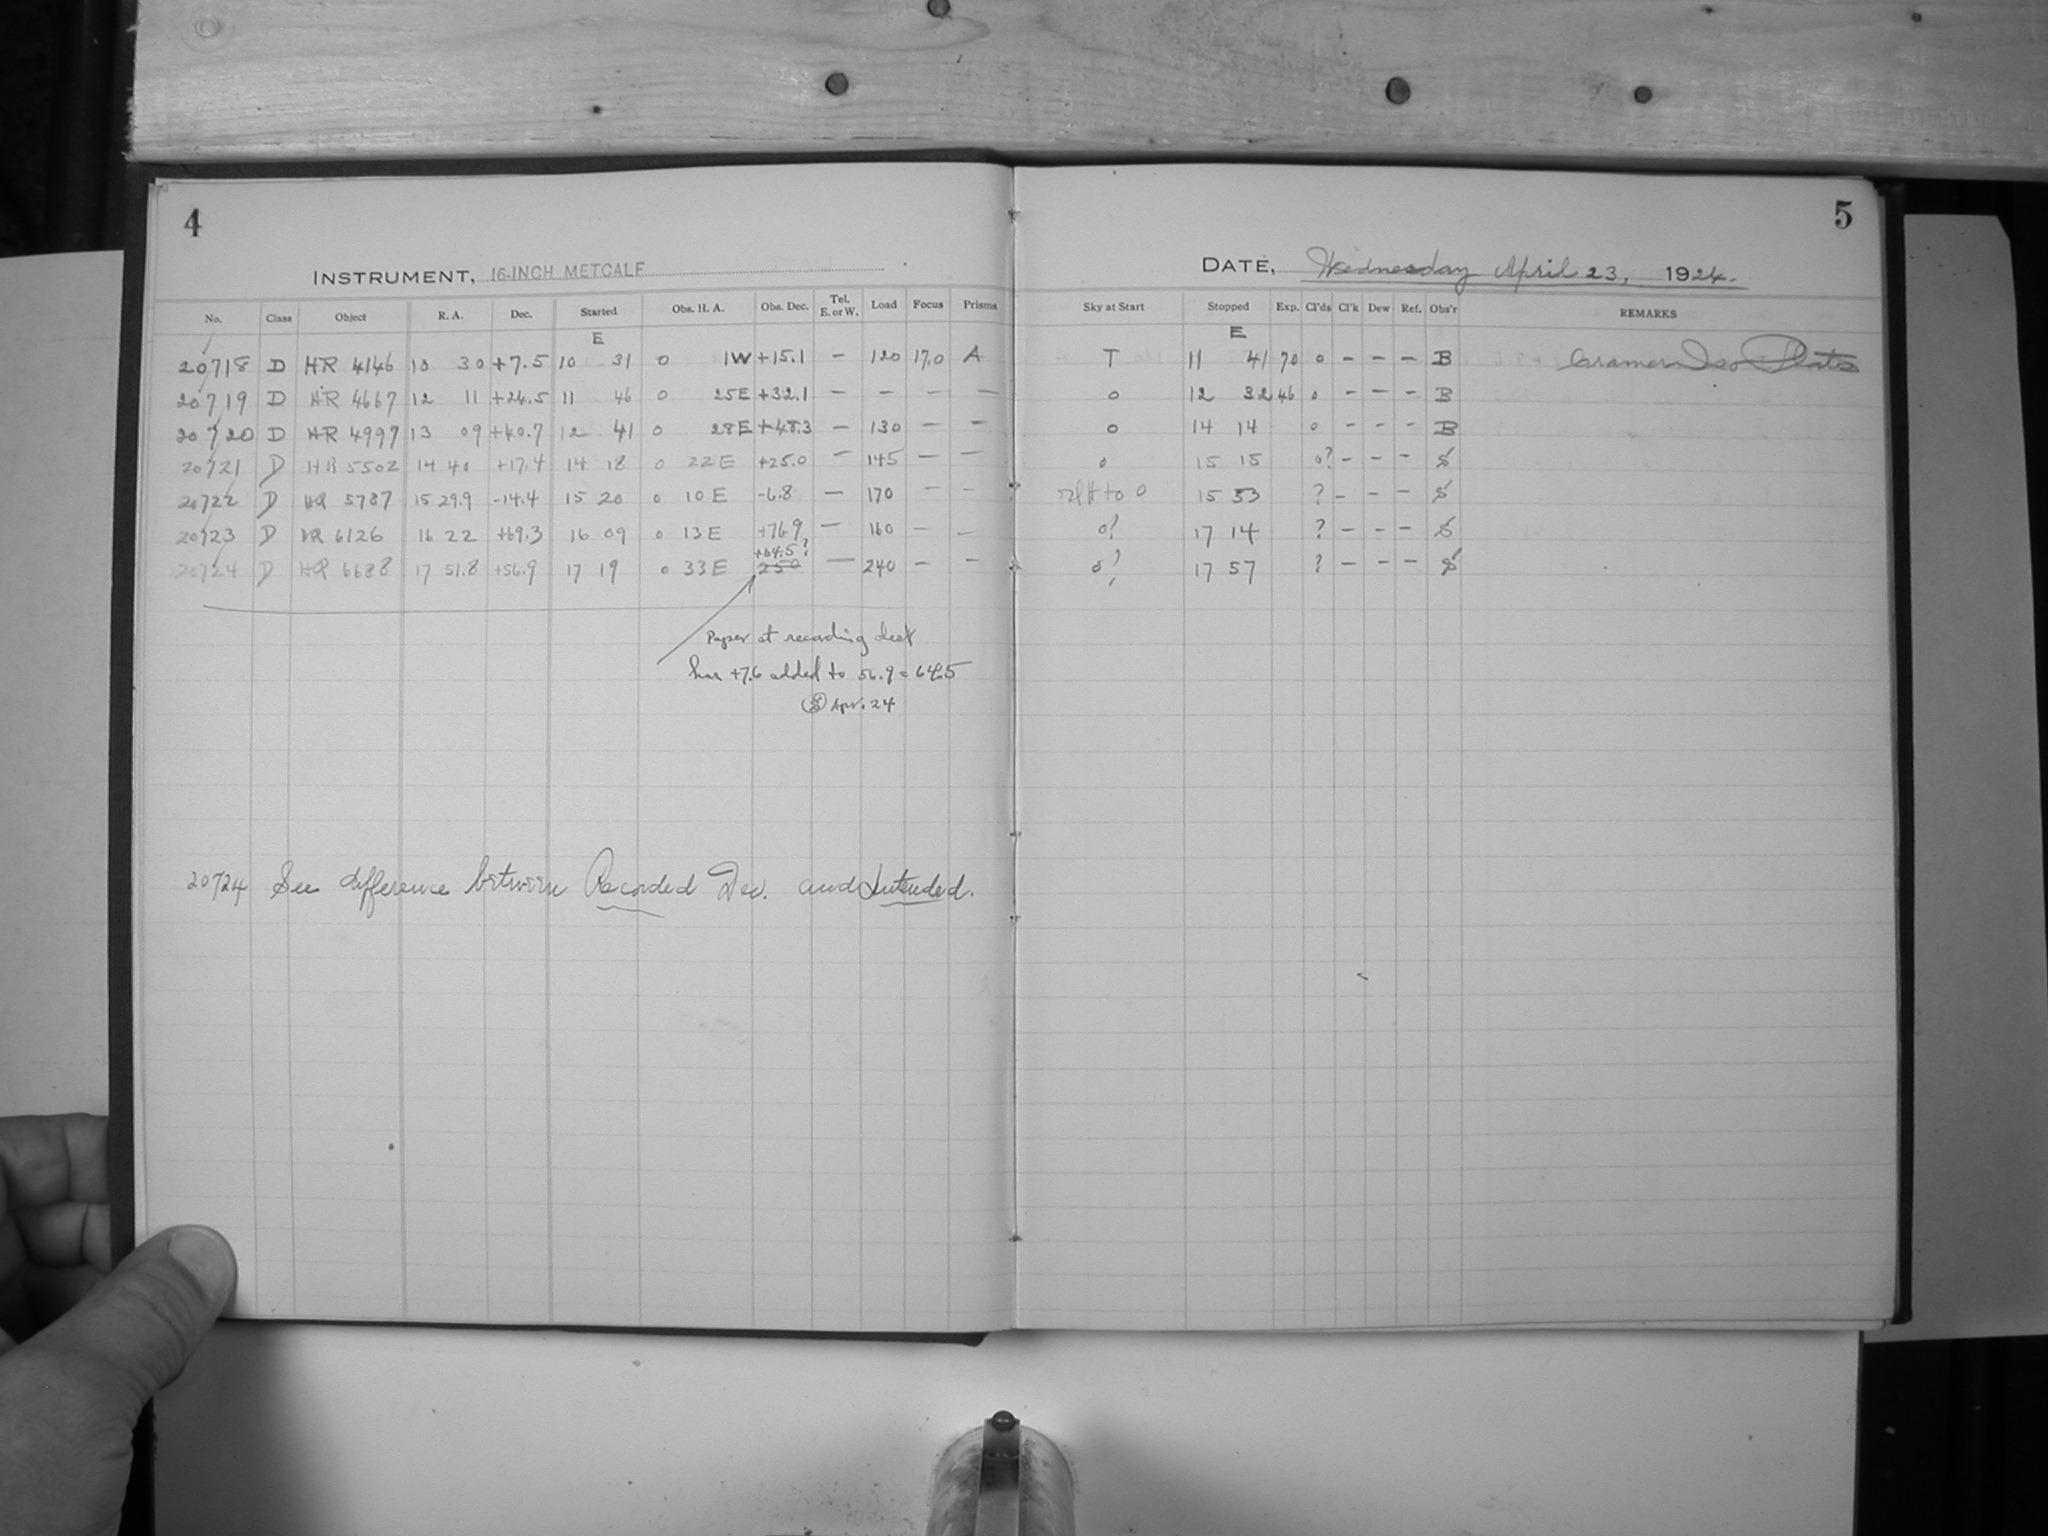 4
INSTRUMENT, 16-INCH METCALF
No. Class Object R. A. Dec. Started Obs. H. A. Obs. Dec. Tel. E. or W. Load Focus Prisms
E
20718 D HR 4146 10 30 +7.5 10 31 0 1W +15.1 – 120 17.0 A
20719 D HR 4667 12 11 +24.5 11 46 0 25E +32.1 – – – –
20720 D HR 4997 13 09 +40.7 12 41 0 28E +48.3 – 130 – –
20721 D HR 5502 14 40 +17.4 14 18 0 22E +25.0 – 145 – –
20722 D HR 5787 15 29.9 -14.4 15 20 0 10E -6.8 – 170 – –
20723 D HR 6126 16 22 +69.3 16 09 0 13E +76.9 – 160 – –
+64.5?
20724 D HR 6688 17 51.8 +56.9 17 19 0 33E 250 – 240 – –
Paper at recording desk
has +7.6 added to 56.9 = 64.5
S Apr. 24
20724 See difference between Recorded Dec. and Intended.
5
DATE, Wednesday April 23, 1924.
Sky at Start Stopped Exp. Cl'ds Cl'k Dew Ref. Obs'r REMARKS
E
T 11 41 70 0 – – – B Cramer Iso Plates
0 12 32 46 0 – – – B
0 14 14 0 – – – B
0 15 15 0? – – – S
to 0 15 53 ? – – – S
0? 17 14 ? – – – S
0? 17 57 ? – – – S